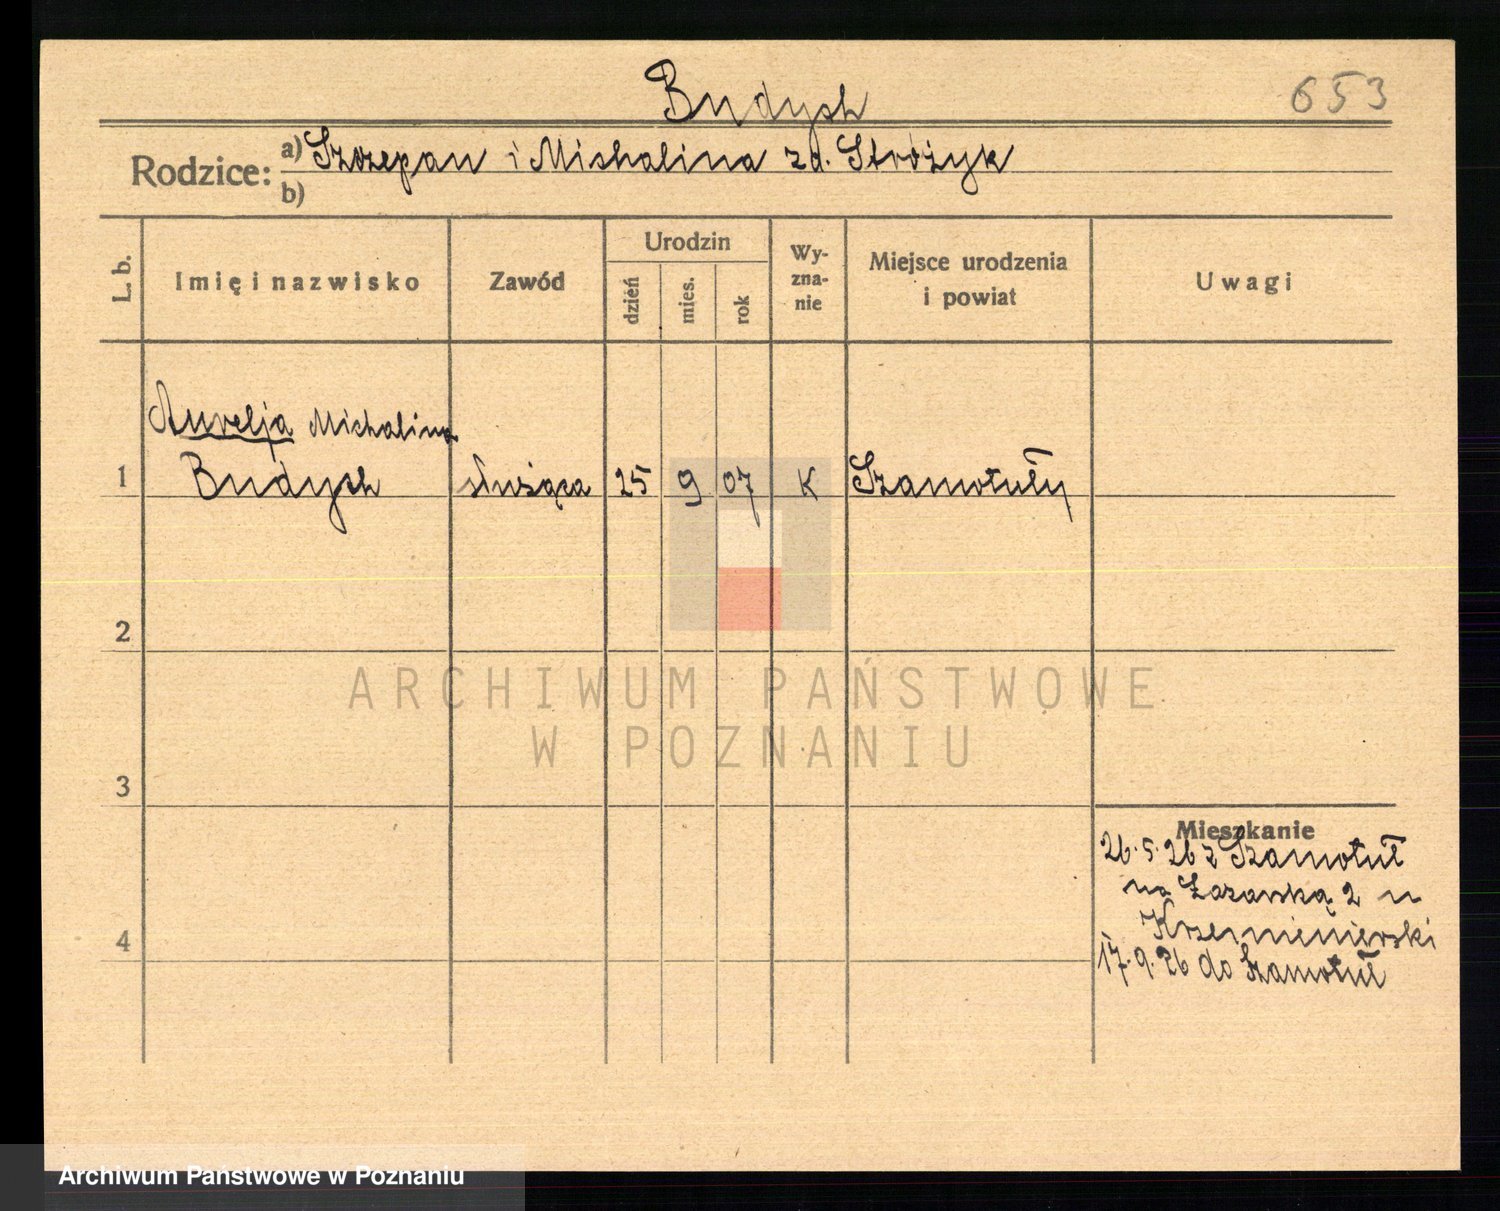 Budych
653
Rodzice: a) Szczepan i Michalina zd. Stróżyk
b)
L. b.
Imię i nazwisko
Zawód
Urodzin
dzień
mies.
rok
Wy-
zna-
nie
Miejsce urodzenia
i powiat
Uwagi
Aurelja Michalina
1 Budych służąca 25 9 07 K Szamotuły
2
ARCHIWUM PAŃSTWOWE
W POZNANIU
3
Mieszkanie
26.5.26 z Szamotuł
na 2 u
17.9.26 do Szamotuł
4
Archiwum Państwowe w Poznaniu